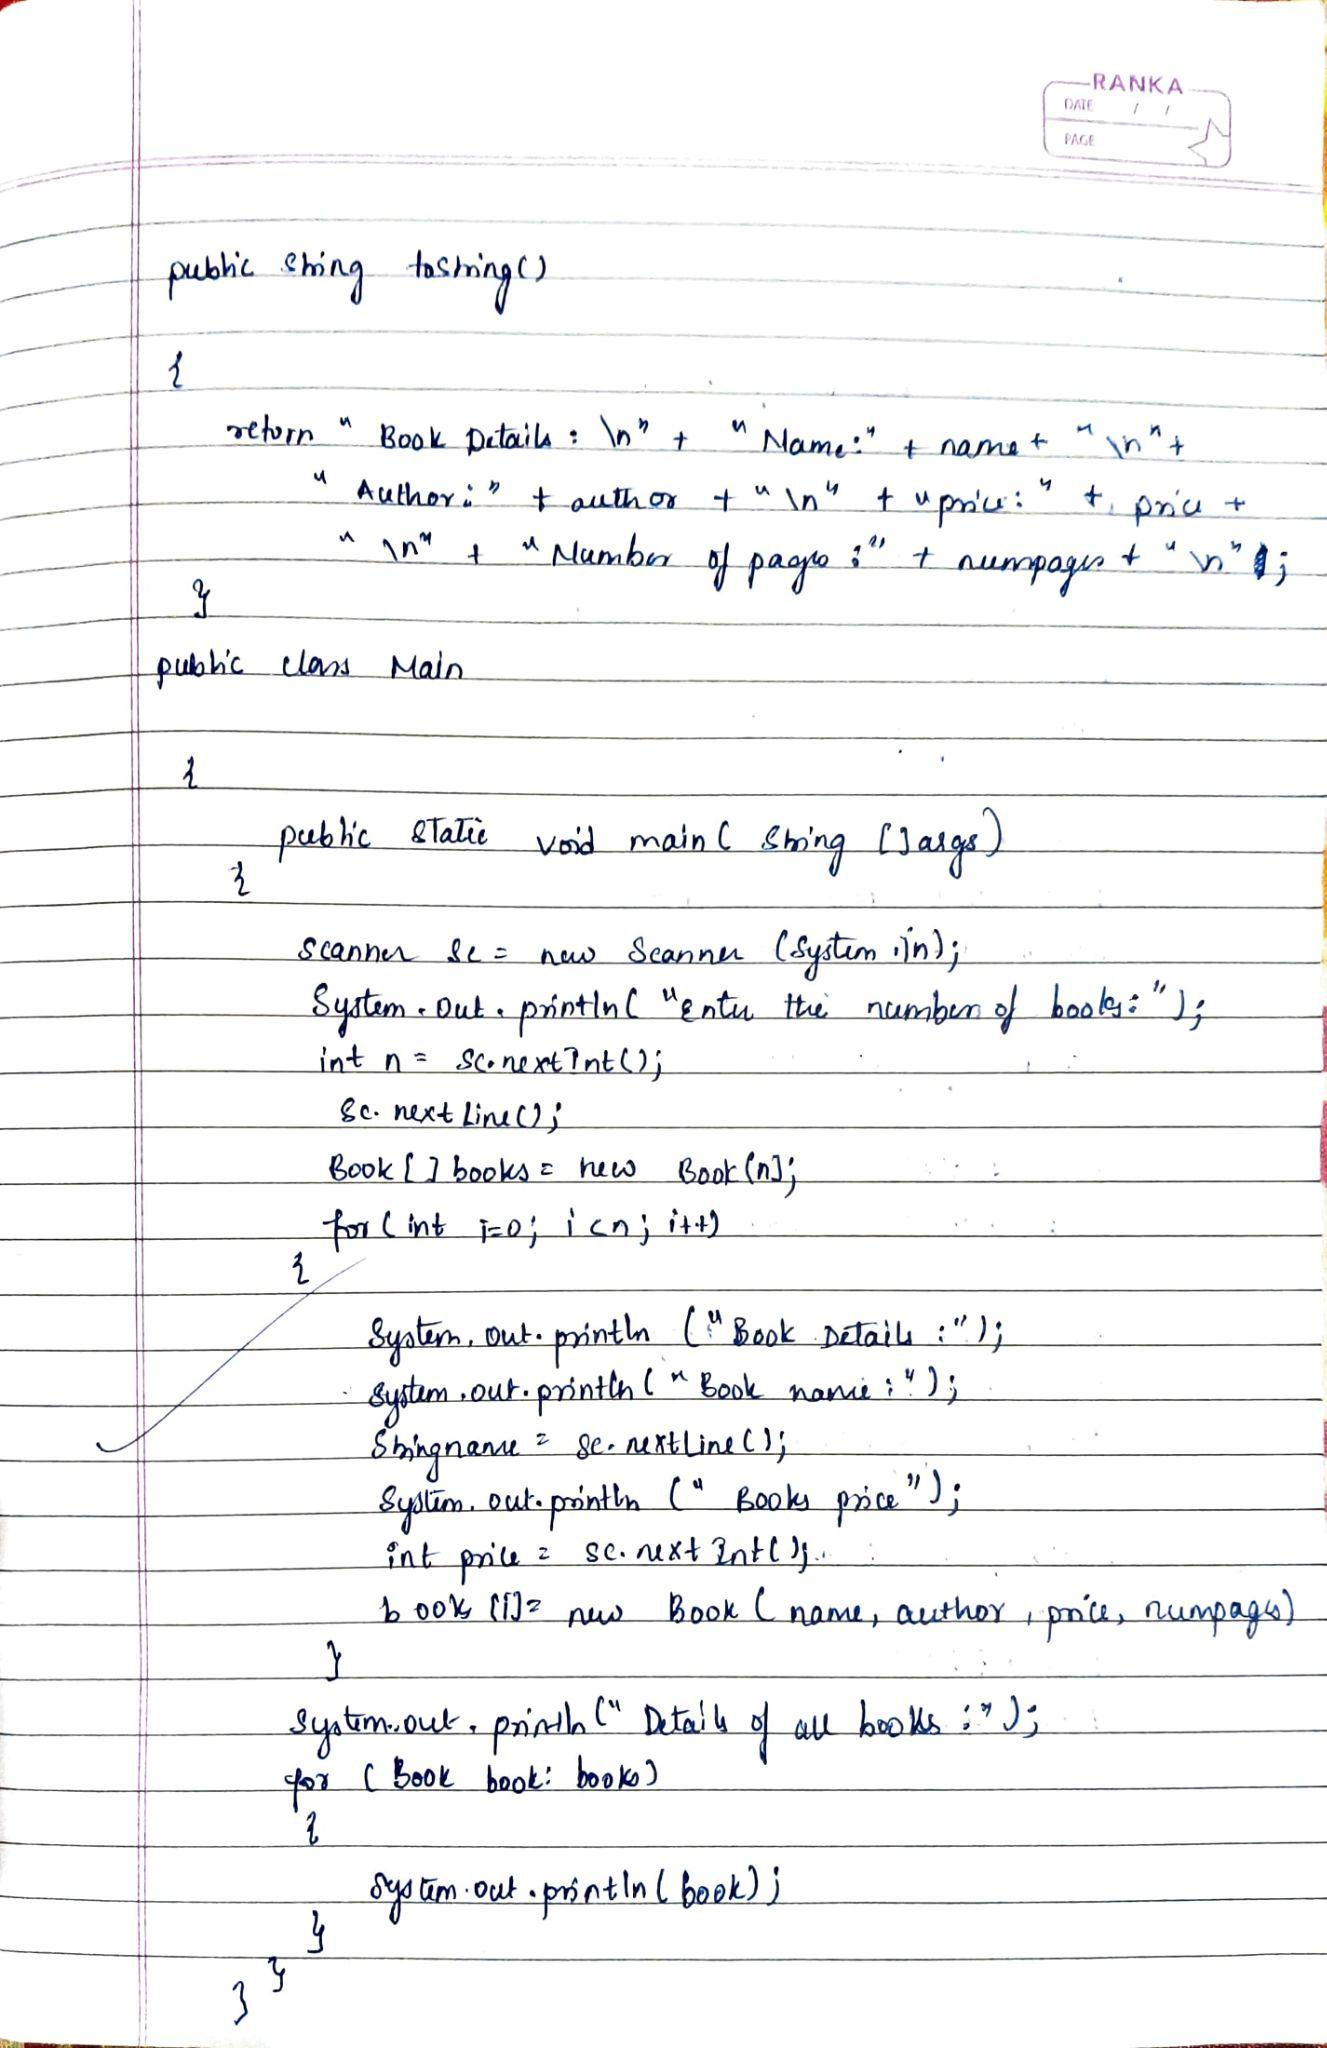 RANKA
DATE / /
PAGE
public String toString()
{
return " Book Details : \n" + " Name:" + name + " \n" +
" Author:" + author + " \n" + " price:" + price +
" \n" + " Number of pages :" + numpages + " \n" ;
}
public class Main
{
public static void main ( String []args)
{
Scanner sc = new Scanner (System.in);
System.out.println( "Enter the number of books:" );
int n = sc.nextInt();
sc.nextLine();
Book [ ] books = new Book [n];
for ( int i=0; i<n; i++)
{
System.out.println ( " Book Details :" );
System.out.println ( " Book name :" );
Stringname = sc.nextLine();
System.out.println ( " Books price " );
int price = sc.nextInt();
books [i]= new Book ( name, author , price, numpages)
}
System.out.println (" Details of all books :" );
for ( Book book: books)
{
System.out.println ( book) ;
}
}
}